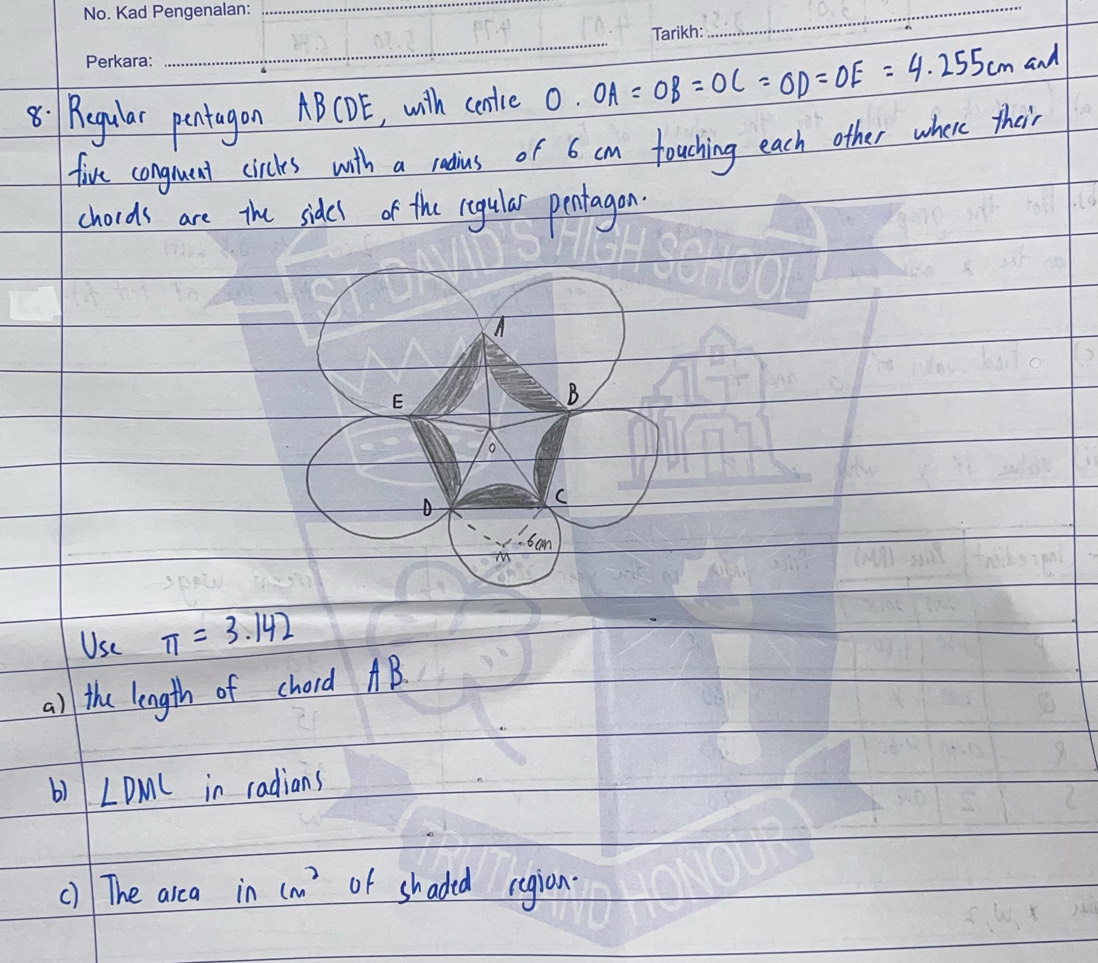 No. Kad Pengenalan:
Tarikh:
Perkara:
8. Regular pentagon ABCDE, with centre O. OA = OB = OC = OD = OE = 4.255cm and
five congruent circles with a radius of 6 cm touching each other where their
chords are the sides of the regular pentagon.
ST. DAVID'S HIGH SCHOOL
A
E
B
O
D
C
M
6cm
Use π = 3.142
a) the length of chord AB.
b) ∠DMC in radians
c) The area in cm² of shaded region.
TRUTH AND HONOUR